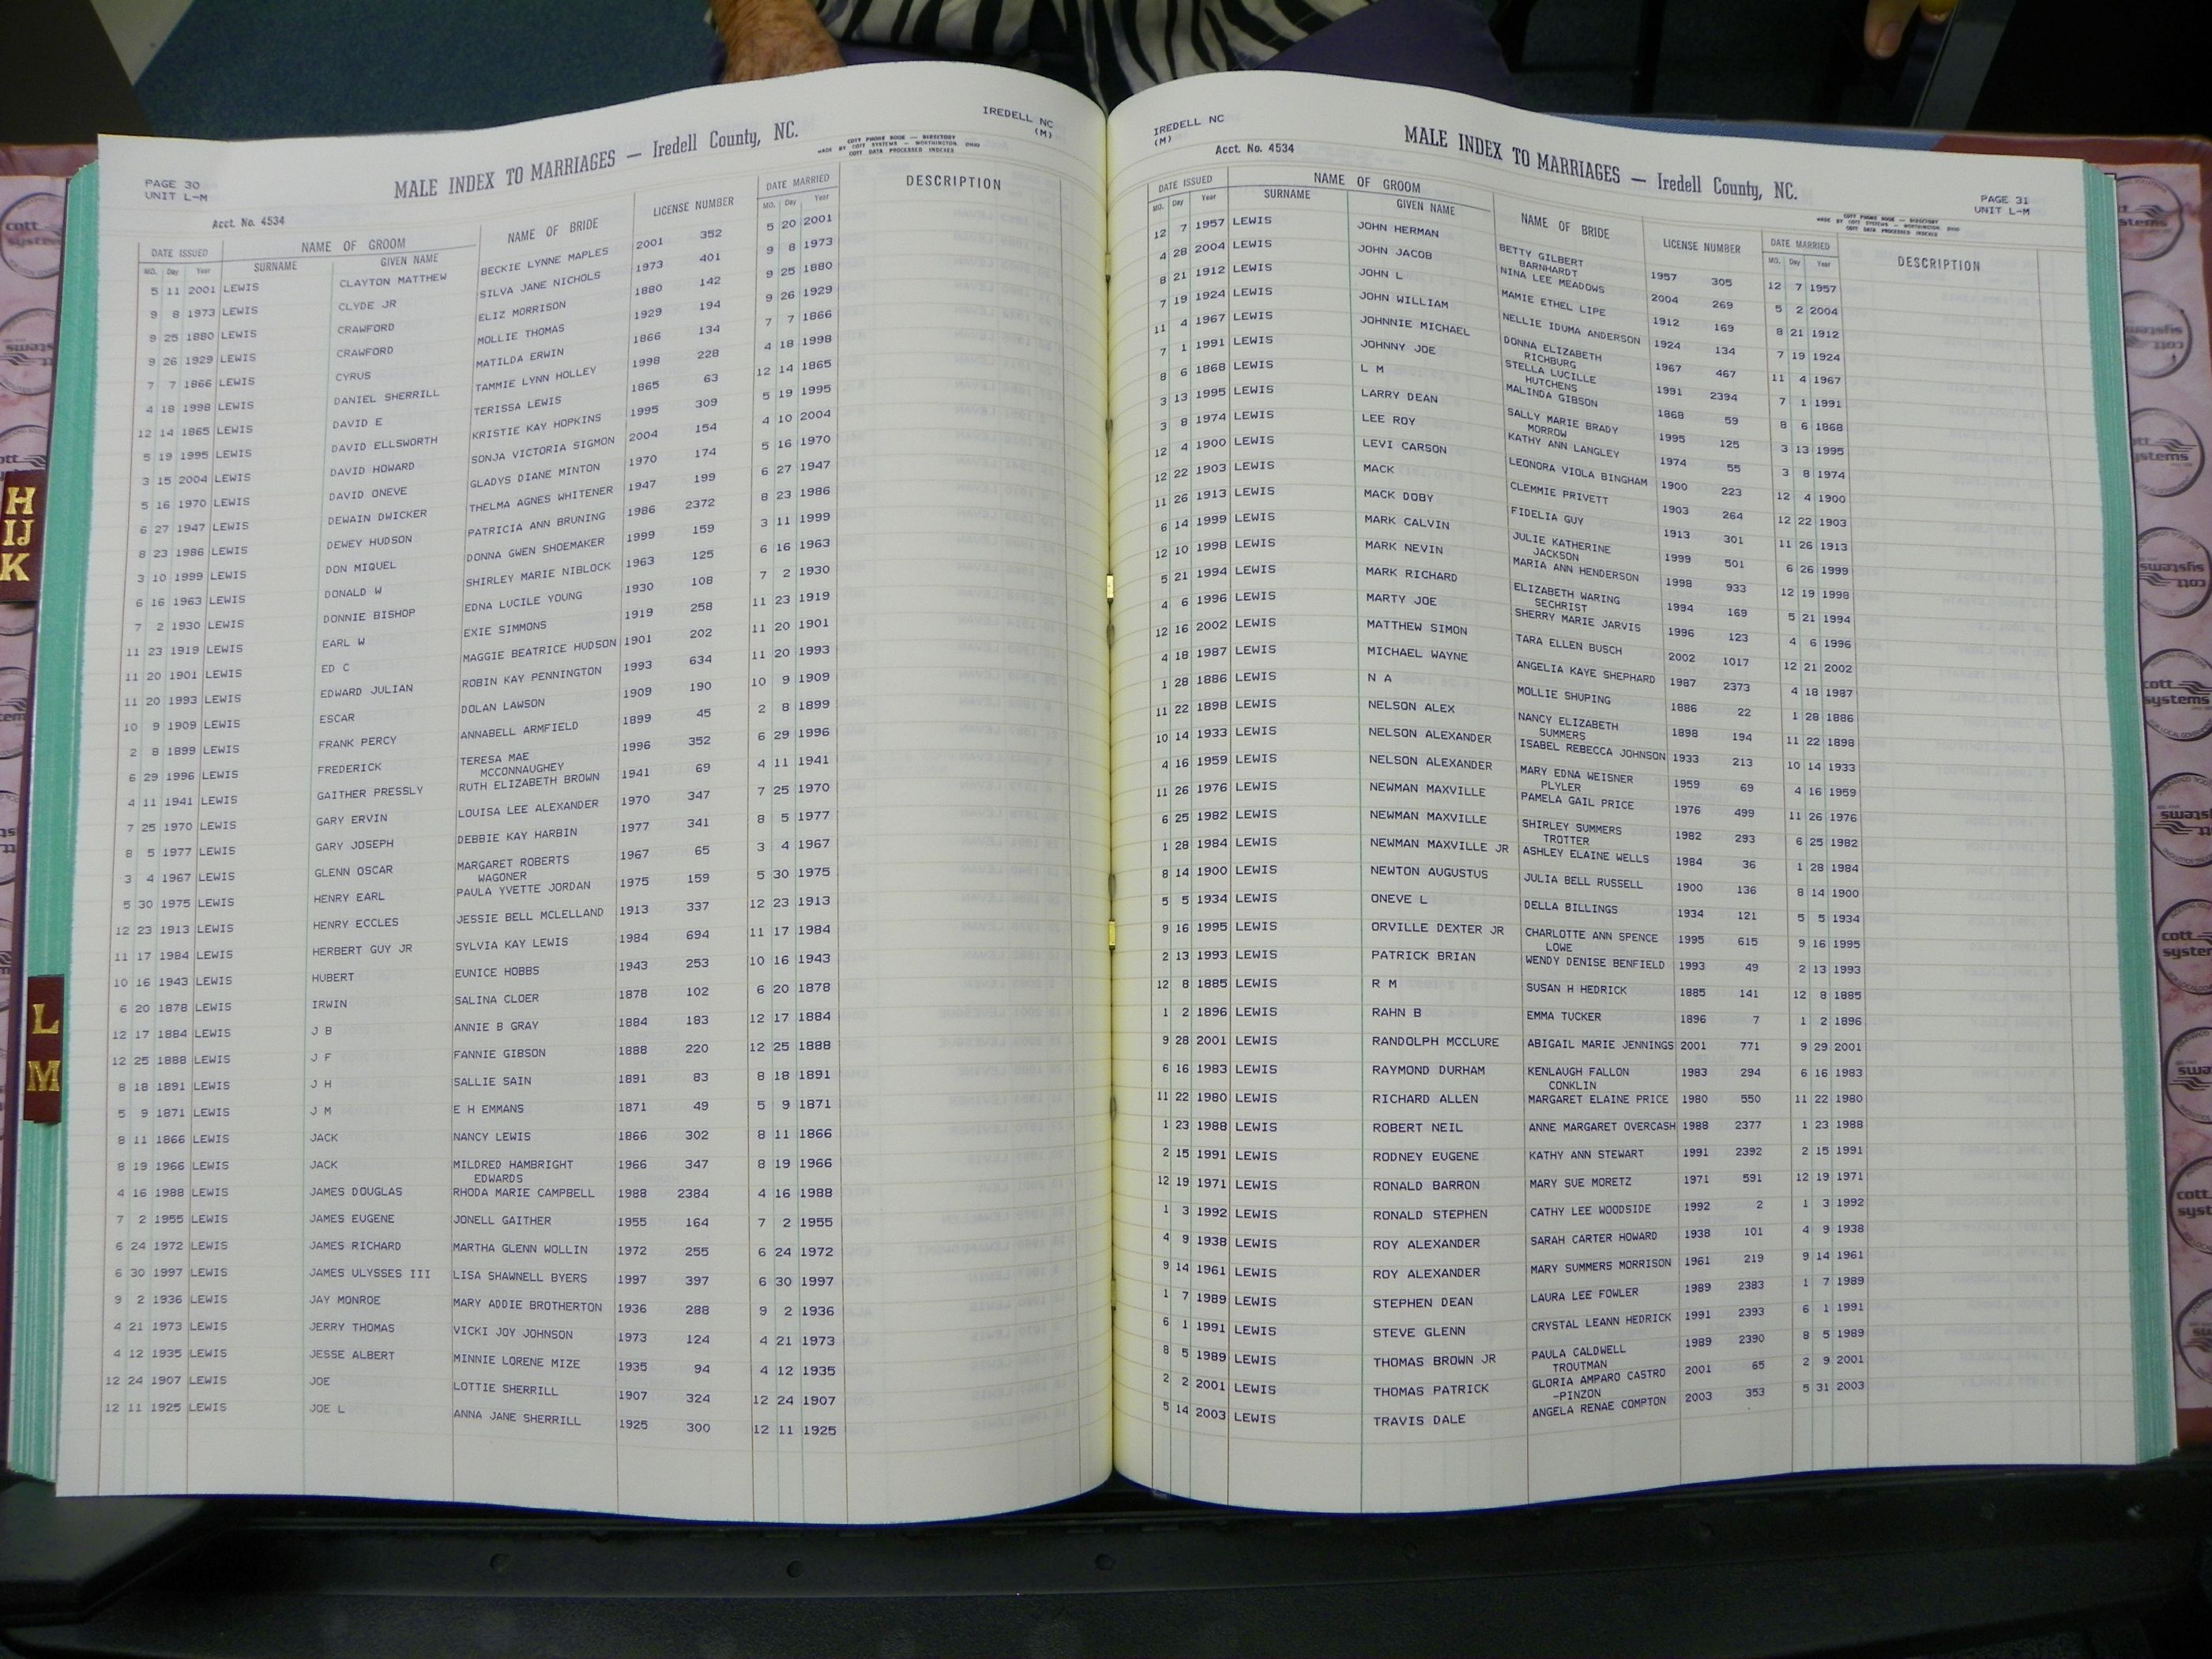 IREDELL NC
(M)
MALE INDEX TO MARRIAGES — Iredell County, NC.
COTT PHONE BOOK — DIRECTORY
MADE BY COTT SYSTEMS — WORTHINGTON OHIO
COTT DATA PROCESSED INDEXES
PAGE 30
UNIT L-M
Acct. No. 4534
DATE ISSUED NAME OF GROOM NAME OF BRIDE LICENSE NUMBER DATE MARRIED DESCRIPTION
MO. Day Year SURNAME GIVEN NAME MO. Day Year
5 11 2001 LEWIS CLAYTON MATTHEW BECKIE LYNNE MAPLES 2001 352 5 20 2001
9 8 1973 LEWIS CLYDE JR SILVA JANE NICHOLS 1973 401 9 8 1973
9 25 1880 LEWIS CRAWFORD ELIZ MORRISON 1880 142 9 25 1880
9 26 1929 LEWIS CRAWFORD MOLLIE THOMAS 1929 194 9 26 1929
7 7 1866 LEWIS CYRUS MATILDA ERWIN 1866 134 7 7 1866
4 18 1998 LEWIS DANIEL SHERRILL TAMMIE LYNN HOLLEY 1998 228 4 18 1998
12 14 1865 LEWIS DAVID E TERISSA LEWIS 1865 63 12 14 1865
5 19 1995 LEWIS DAVID ELLSWORTH KRISTIE KAY HOPKINS 1995 309 5 19 1995
3 15 2004 LEWIS DAVID HOWARD SONJA VICTORIA SIGMON 2004 154 4 10 2004
5 16 1970 LEWIS DAVID ONEVE GLADYS DIANE MINTON 1970 174 5 16 1970
6 27 1947 LEWIS DEWAIN DWICKER THELMA AGNES WHITENER 1947 199 6 27 1947
8 23 1986 LEWIS DEWEY HUDSON PATRICIA ANN BRUNING 1986 2372 8 23 1986
3 10 1999 LEWIS DON MIQUEL DONNA GWEN SHOEMAKER 1999 159 3 11 1999
6 16 1963 LEWIS DONALD W SHIRLEY MARIE NIBLOCK 1963 125 6 16 1963
7 2 1930 LEWIS DONNIE BISHOP EDNA LUCILE YOUNG 1930 108 7 2 1930
11 23 1919 LEWIS EARL W EXIE SIMMONS 1919 258 11 23 1919
11 20 1901 LEWIS ED C MAGGIE BEATRICE HUDSON 1901 202 11 20 1901
11 20 1993 LEWIS EDWARD JULIAN ROBIN KAY PENNINGTON 1993 634 11 20 1993
10 9 1909 LEWIS ESCAR DOLAN LAWSON 1909 190 10 9 1909
2 8 1899 LEWIS FRANK PERCY ANNABELL ARMFIELD 1899 45 2 8 1899
6 29 1996 LEWIS FREDERICK TERESA MAE 1996 352 6 29 1996
MCCONNAUGHEY
4 11 1941 LEWIS GAITHER PRESSLY RUTH ELIZABETH BROWN 1941 69 4 11 1941
7 25 1970 LEWIS GARY ERVIN LOUISA LEE ALEXANDER 1970 347 7 25 1970
8 5 1977 LEWIS GARY JOSEPH DEBBIE KAY HARBIN 1977 341 8 5 1977
3 4 1967 LEWIS GLENN OSCAR MARGARET ROBERTS 1967 65 3 4 1967
WAGONER
5 30 1975 LEWIS HENRY EARL PAULA YVETTE JORDAN 1975 159 5 30 1975
12 23 1913 LEWIS HENRY ECCLES JESSIE BELL MCLELLAND 1913 337 12 23 1913
11 17 1984 LEWIS HERBERT GUY JR SYLVIA KAY LEWIS 1984 694 11 17 1984
10 16 1943 LEWIS HUBERT EUNICE HOBBS 1943 253 10 16 1943
6 20 1878 LEWIS IRWIN SALINA CLOER 1878 102 6 20 1878
12 17 1884 LEWIS J B ANNIE B GRAY 1884 183 12 17 1884
12 25 1888 LEWIS J F FANNIE GIBSON 1888 220 12 25 1888
8 18 1891 LEWIS J H SALLIE SAIN 1891 83 8 18 1891
5 9 1871 LEWIS J M E H EMMANS 1871 49 5 9 1871
8 11 1866 LEWIS JACK NANCY LEWIS 1866 302 8 11 1866
8 19 1966 LEWIS JACK MILDRED HAMBRIGHT 1966 347 8 19 1966
EDWARDS
4 16 1988 LEWIS JAMES DOUGLAS RHODA MARIE CAMPBELL 1988 2384 4 16 1988
7 2 1955 LEWIS JAMES EUGENE JONELL GAITHER 1955 164 7 2 1955
6 24 1972 LEWIS JAMES RICHARD MARTHA GLENN WOLLIN 1972 255 6 24 1972
6 30 1997 LEWIS JAMES ULYSSES III LISA SHAWNELL BYERS 1997 397 6 30 1997
9 2 1936 LEWIS JAY MONROE MARY ADDIE BROTHERTON 1936 288 9 2 1936
4 21 1973 LEWIS JERRY THOMAS VICKI JOY JOHNSON 1973 124 4 21 1973
4 12 1935 LEWIS JESSE ALBERT MINNIE LORENE MIZE 1935 94 4 12 1935
12 24 1907 LEWIS JOE LOTTIE SHERRILL 1907 324 12 24 1907
12 11 1925 LEWIS JOE L ANNA JANE SHERRILL 1925 300 12 11 1925
IREDELL NC
(M)
Acct. No. 4534
MALE INDEX TO MARRIAGES — Iredell County, NC.
PAGE 31
UNIT L-M
COTT PHONE BOOK — DIRECTORY
MADE BY COTT SYSTEMS — WORTHINGTON OHIO
COTT DATA PROCESSED INDEXES
DATE ISSUED NAME OF GROOM NAME OF BRIDE LICENSE NUMBER DATE MARRIED DESCRIPTION
MO. Day Year SURNAME GIVEN NAME MO. Day Year
12 7 1957 LEWIS JOHN HERMAN BETTY GILBERT 1957 305 12 7 1957
BARNHARDT
4 28 2004 LEWIS JOHN JACOB NINA LEE MEADOWS 2004 269 5 2 2004
8 21 1912 LEWIS JOHN L MAMIE ETHEL LIPE 1912 169 8 21 1912
7 19 1924 LEWIS JOHN WILLIAM NELLIE IDUMA ANDERSON 1924 134 7 19 1924
11 4 1967 LEWIS JOHNNIE MICHAEL DONNA ELIZABETH 1967 467 11 4 1967
RICHBURG
7 1 1991 LEWIS JOHNNY JOE STELLA LUCILLE 1991 2394 7 1 1991
HUTCHENS
8 6 1868 LEWIS L M MALINDA GIBSON 1868 59 8 6 1868
3 13 1995 LEWIS LARRY DEAN SALLY MARIE BRADY 1995 125 3 13 1995
MORROW
3 8 1974 LEWIS LEE ROY KATHY ANN LANGLEY 1974 55 3 8 1974
12 4 1900 LEWIS LEVI CARSON LEONORA VIOLA BINGHAM 1900 223 12 4 1900
12 22 1903 LEWIS MACK CLEMMIE PRIVETT 1903 264 12 22 1903
11 26 1913 LEWIS MACK DOBY FIDELIA GUY 1913 301 11 26 1913
6 14 1999 LEWIS MARK CALVIN JULIE KATHERINE 1999 501 6 26 1999
JACKSON
12 10 1998 LEWIS MARK NEVIN MARIA ANN HENDERSON 1998 933 12 19 1998
5 21 1994 LEWIS MARK RICHARD ELIZABETH WARING 1994 169 5 21 1994
SECHRIST
4 6 1996 LEWIS MARTY JOE SHERRY MARIE JARVIS 1996 123 4 6 1996
12 16 2002 LEWIS MATTHEW SIMON TARA ELLEN BUSCH 2002 1017 12 21 2002
4 18 1987 LEWIS MICHAEL WAYNE ANGELIA KAYE SHEPHARD 1987 2373 4 18 1987
1 28 1886 LEWIS N A MOLLIE SHUPING 1886 22 1 28 1886
11 22 1898 LEWIS NELSON ALEX NANCY ELIZABETH 1898 194 11 22 1898
SUMMERS
10 14 1933 LEWIS NELSON ALEXANDER ISABEL REBECCA JOHNSON 1933 213 10 14 1933
4 16 1959 LEWIS NELSON ALEXANDER MARY EDNA WEISNER 1959 69 4 16 1959
PLYLER
11 26 1976 LEWIS NEWMAN MAXVILLE PAMELA GAIL PRICE 1976 499 11 26 1976
6 25 1982 LEWIS NEWMAN MAXVILLE SHIRLEY SUMMERS 1982 293 6 25 1982
TROTTER
1 28 1984 LEWIS NEWMAN MAXVILLE JR ASHLEY ELAINE WELLS 1984 36 1 28 1984
8 14 1900 LEWIS NEWTON AUGUSTUS JULIA BELL RUSSELL 1900 136 8 14 1900
5 5 1934 LEWIS ONEVE L DELLA BILLINGS 1934 121 5 5 1934
9 16 1995 LEWIS ORVILLE DEXTER JR CHARLOTTE ANN SPENCE 1995 615 9 16 1995
LOWE
2 13 1993 LEWIS PATRICK BRIAN WENDY DENISE BENFIELD 1993 49 2 13 1993
12 8 1885 LEWIS R M SUSAN H HEDRICK 1885 141 12 8 1885
1 2 1896 LEWIS RAHN B EMMA TUCKER 1896 7 1 2 1896
9 28 2001 LEWIS RANDOLPH MCCLURE ABIGAIL MARIE JENNINGS 2001 771 9 29 2001
6 16 1983 LEWIS RAYMOND DURHAM KENLAUGH FALLON 1983 294 6 16 1983
CONKLIN
11 22 1980 LEWIS RICHARD ALLEN MARGARET ELAINE PRICE 1980 550 11 22 1980
1 23 1988 LEWIS ROBERT NEIL ANNE MARGARET OVERCASH 1988 2377 1 23 1988
2 15 1991 LEWIS RODNEY EUGENE KATHY ANN STEWART 1991 2392 2 15 1991
12 19 1971 LEWIS RONALD BARRON MARY SUE MORETZ 1971 591 12 19 1971
1 3 1992 LEWIS RONALD STEPHEN CATHY LEE WOODSIDE 1992 2 1 3 1992
4 9 1938 LEWIS ROY ALEXANDER SARAH CARTER HOWARD 1938 101 4 9 1938
9 14 1961 LEWIS ROY ALEXANDER MARY SUMMERS MORRISON 1961 219 9 14 1961
1 7 1989 LEWIS STEPHEN DEAN LAURA LEE FOWLER 1989 2383 1 7 1989
6 1 1991 LEWIS STEVE GLENN CRYSTAL LEANN HEDRICK 1991 2393 6 1 1991
8 5 1989 LEWIS THOMAS BROWN JR PAULA CALDWELL 1989 2390 8 5 1989
TROUTMAN
2 2 2001 LEWIS THOMAS PATRICK GLORIA AMPARO CASTRO 2001 65 2 9 2001
-PINZON
5 14 2003 LEWIS TRAVIS DALE ANGELA RENAE COMPTON 2003 353 5 31 2003
H
IJ
K
L
M
cott
systems